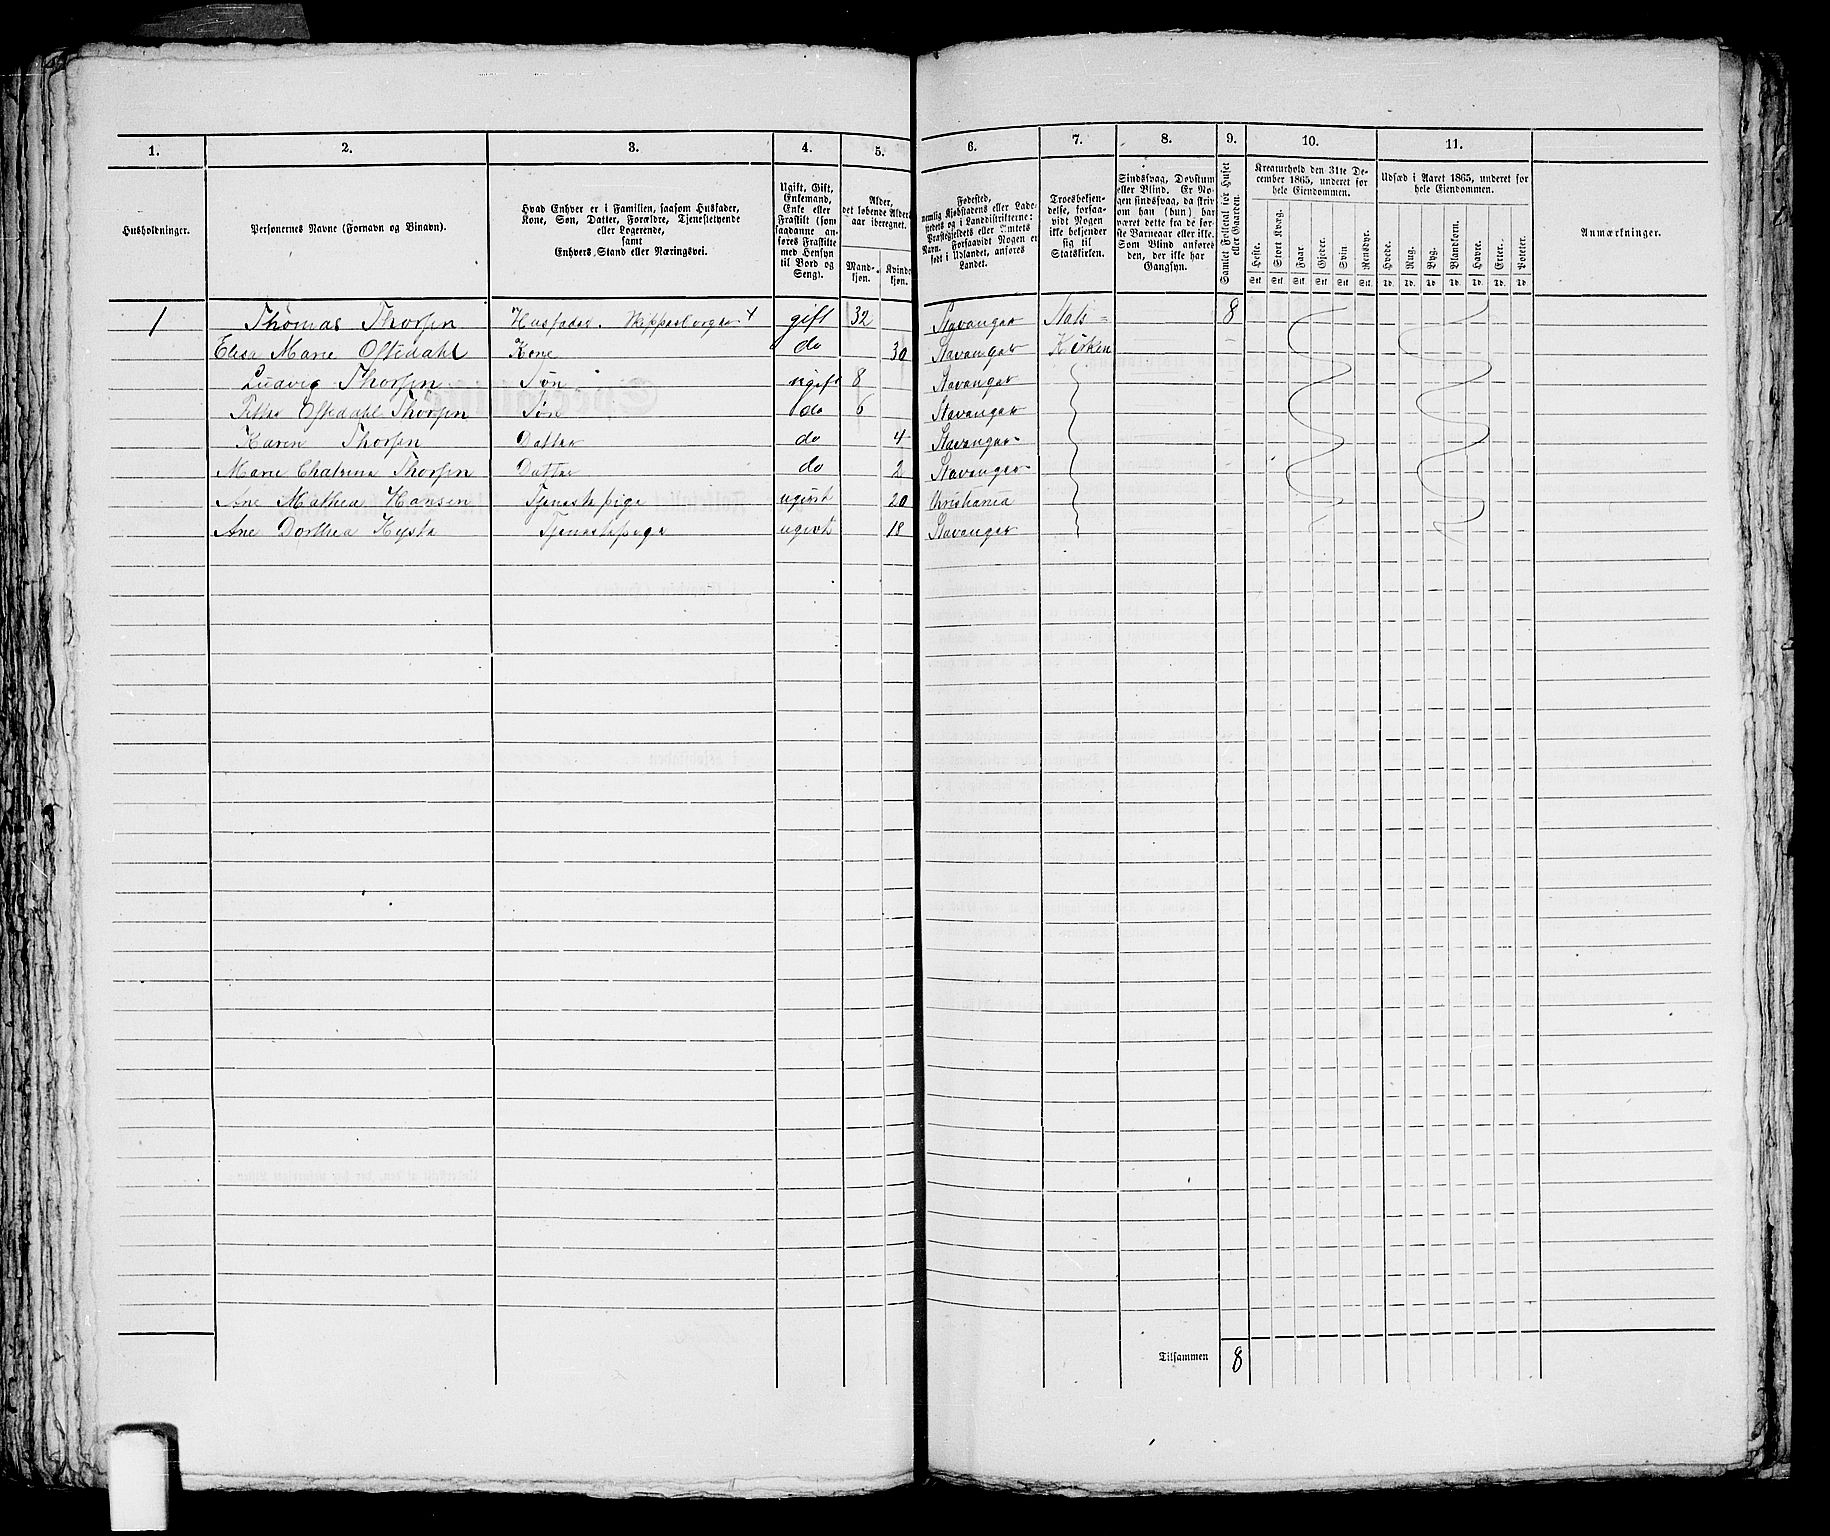 1. 2. 3. 4. 5. 6. 7. 8. 9. 10. 11.
Husholdninger.
Personernes Navne (Fornavn og Binavn).
Hvad Enhver er i Familien, saasom Husfader,
Kone, Søn, Datter, Forældre, Tjenestetyende
eller Logerende,
samt
Enhvers Stand eller Næringsvei.
Ugift, Gift,
Enkemand,
Enke eller
Fraskilt (som
saadanne an-
føres Fraskilte
med Hensyn
til Bord og
Seng).
Alder,
det løbende Alders-
aar iberegnet.
Mand-
kjøn.
Kvinde-
kjøn.
Fødested,
nemlig Kjøbstadens eller Lade-
stedets og i Landdistrikterne:
Præstegjeldets eller Amtets
Navn. Forsaavidt Nogen er
født i Udlandet, anføres
Landet.
Troesbekjen-
delse, forsaa-
vidt Nogen
ikke bekjender
sig til
Statskirken.
Sindssvag, Døvstum
eller Blind. Er No-
gen sindssvag, da skriv
om han (hun) har
været dette fra de før-
ste Barneaar eller ikke.
Som Blind anføres
den, der ikke har
Gangsyn.
Samlet Folketal for Huset
eller Gaarden.
Kreaturhold den 31te De-
cember 1865, underet for
hele Eiendommen.
Heste. Stort Kvæg. Faar. Gjeder. Svin Rensdyr.
Stk. Stk. Stk. Stk. Stk. Stk.
Udsæd i Aaret 1865, underet for
hele Eiendommen.
Hvede. Rug. Byg. Blandkorn. Havre. Erter. Poteter.
Td. Td. Td. Td. Td. Td. Td.
Anmærkninger.
1 Thomas Thorsen Husfader. Skipperborger gift 32 Stavanger Stats= 8
Elisa Marie Oftedahl Kone do 30 Stavanger Kirken
Ludvig Thorsen Søn ugift 8 Stavanger
Oftedahl Thorsen Søn do 6 Stavanger
Karen Thorsen Datter do 4 Stavanger
Marie Thorsen Datter do 2 Stavanger
Ane Mathea Hansen Tjenestepige ugivt 20 Christiania
Ane Dorthea Tjenestepige ugivt 18 Stavanger
Tilsammen 8